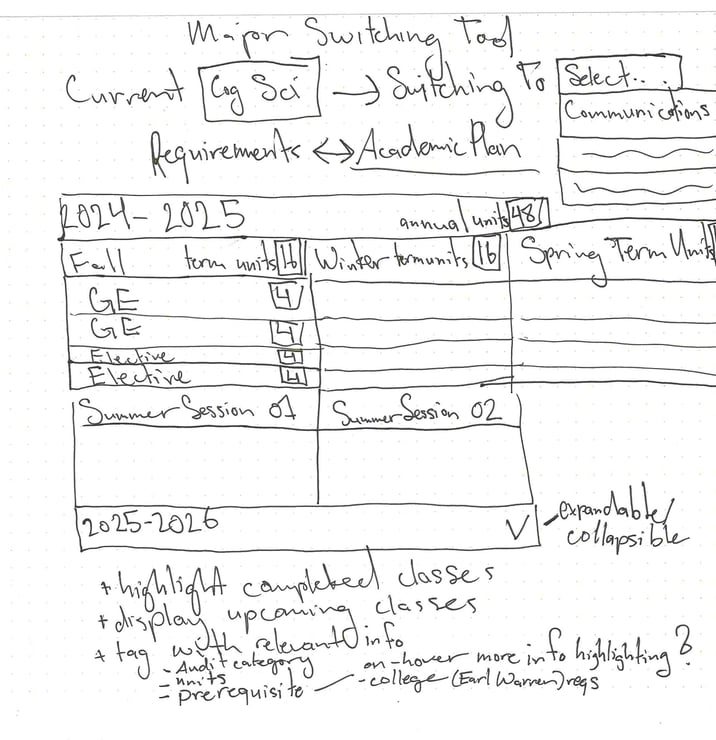 Major Switching Tool
Current Cog Sci → Switching To Select...
Communications
Requirements ↔ Academic Plan
2024-2025 annual units 48
Fall term units 16 Winter term units 16 Spring Term Units
GE 4
GE 4
Elective 4
Elective 4
Summer Session 01 Summer Session 02
2025-2026
expandable/
collapsible
+ highlight completed classes
+ display upcoming classes
+ tag with relevant info
- Audit category on-hover more info highlighting?
- units
- prerequisite - college (Earl Warren) reqs